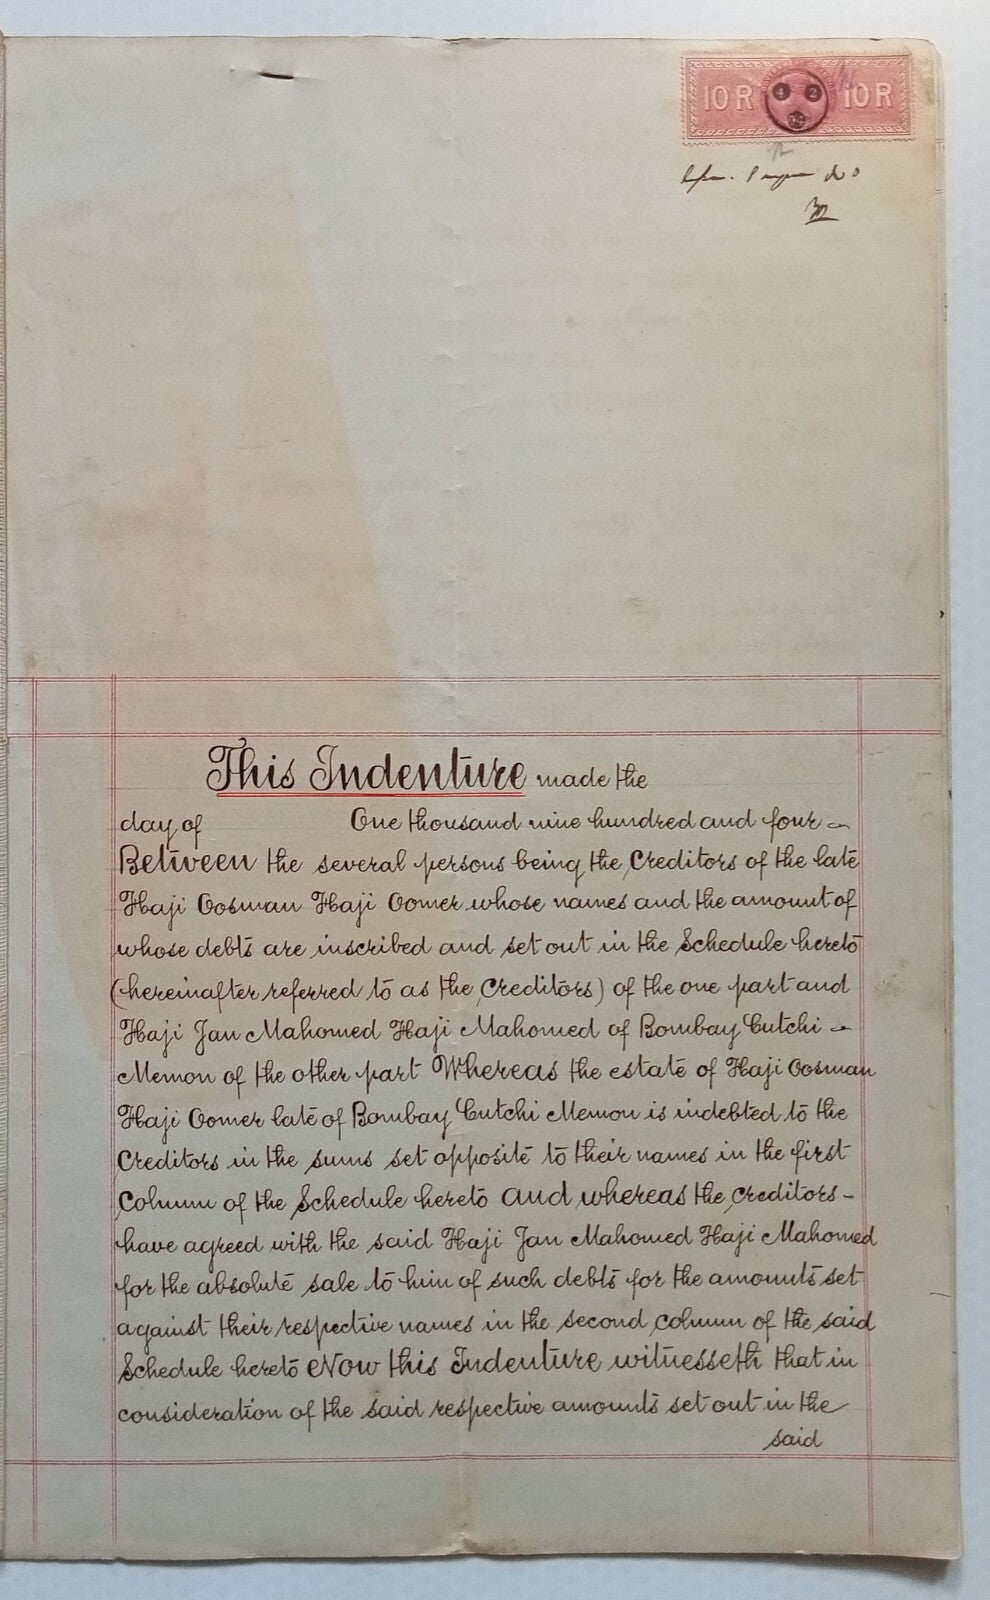 10 R 10 R
4 2
This Indenture made the
day of One thousand nine hundred and four
Between the several persons being the Creditors of the late
Haji Oosman Haji Oomer whose names and the amount of
whose debts are inscribed and set out in the Schedule hereto
(hereinafter referred to as the Creditors) of the one part and
Haji Jan Mahomed Haji Mahomed of Bombay Cutchi -
Memon of the other part Whereas the estate of Haji Oosman
Haji Oomer late of Bombay Cutchi Memon is indebted to the
Creditors in the sums set opposite to their names in the first
Column of the Schedule hereto and whereas the creditors -
have agreed with the said Haji Jan Mahomed Haji Mahomed
for the absolute sale to him of such debts for the amounts set
against their respective names in the second column of the said
Schedule hereto Now this Indenture witnesseth that in
consideration of the said respective amounts set out in the
said